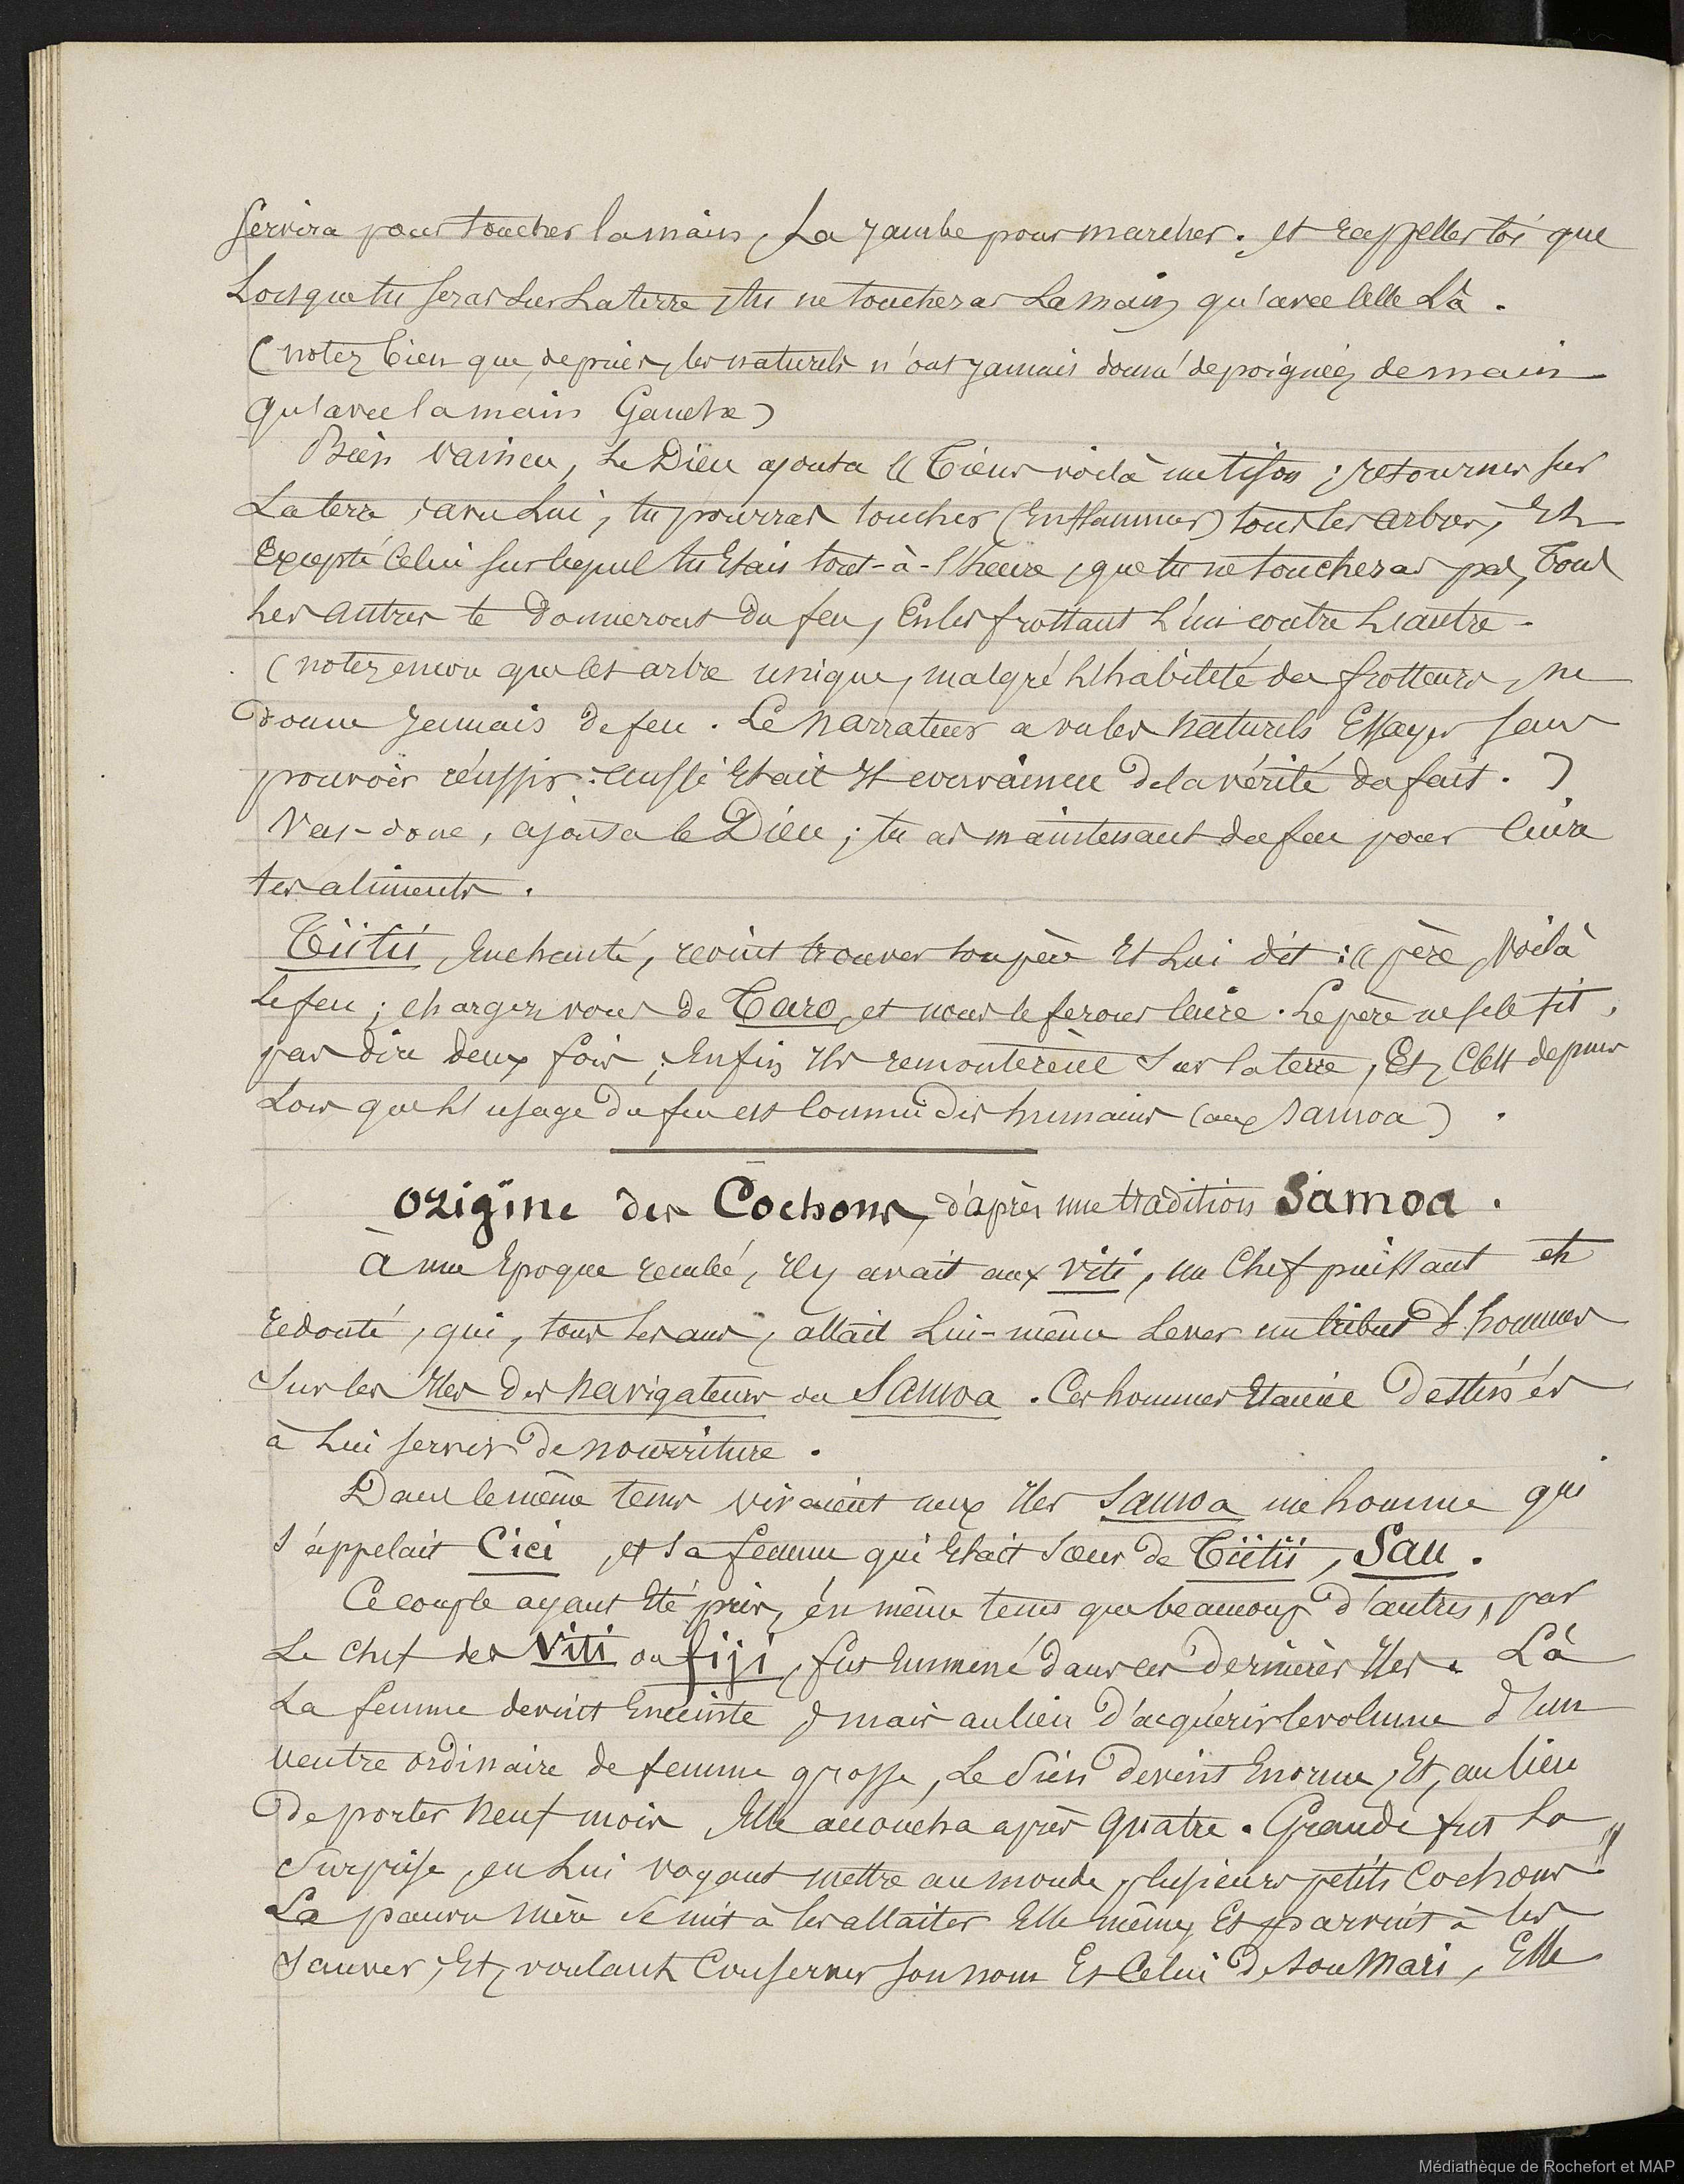 Servira pour toucher la main, La jambe pour marcher. et rappelles toi que
Lorsque tu seras sur La terre, tu ne toucheras La main qu'avec celle Là.
(notez bien que, depuis, les naturels n'ont jamais donné de poignées de main
qu'avec la main Gauche)
Bien vaincu, Le Dieu ajouta « Tiens voilà un tison ; retournes sur
La terre, avec Lui, tu pourras toucher (Enflammer) tous les arbres, Et
Excepté Celui sur lequel tu Etais tout-à-l'heure, que tu ne toucheras pas, Tous
Les autres te donneront du feu, En les frottant L'un contre L'autre.
(notez encore que Cet arbre unique, malgré L'habileté des frotteurs, ne
donne jamais de feu. Le narrateur a vu les naturels Essayer sans
pouvoir réussir : Aussi Etait Il convaincu de la vérité du fait.)
Vas-donc, ajouta le Dieu ; tu as maintenant du feu pour Cuire
tes aliments.
Tiitii, Enchanté, revint trouver son père Et Lui dit : « père, Voilà
Le feu ; chargez vous de Taro, et nous le ferons Cuire. Le père ne se le fit,
pas dire deux fois ; Enfin Ils remontèrent Sur la terre, Et, C'est depuis
Lors que L'usage du feu est Connu des humains (aux Samoa).
Origine des Cochons, d'après une tradition Samoa.
À une Epoque reculée, Il y avait aux Viti, un Chef puissant et
redouté, qui, tous Les ans, allait Lui-même Lever un tribut d'hommes
Sur les Iles des navigateurs ou Samoa. Ces hommes Etaient Destinés
à Lui servir de nourriture.
Dans le même tems vivaient aux Iles Samoa un homme qui
s'appelait Cici, et sa femme qui Etait sœur de Tiitii, Sau.
Ce couple ayant Eté pris, en même tems que beaucoup d'autres, par
Le Chef des Viti ou fiji, fut Emmené dans ces dernières Iles. Là
La femme devint Enceinte, mais au lieu d'acquérir le volume d'un
ventre ordinaire de femme grosse, Le Sien devint Enorme, Et, au lieu
De porter Neuf mois Elle accoucha après quatre. Grande fut La
Surprise, en Lui voyant mettre au monde, plusieurs petits Cochons !!
La pauvre mère se mit à les allaiter Elle même, Et parvint à les
Sauver, Et, voulant Conserver son nom Et Celui de son Mari, Elle
Médiathèque de Rochefort et MAP